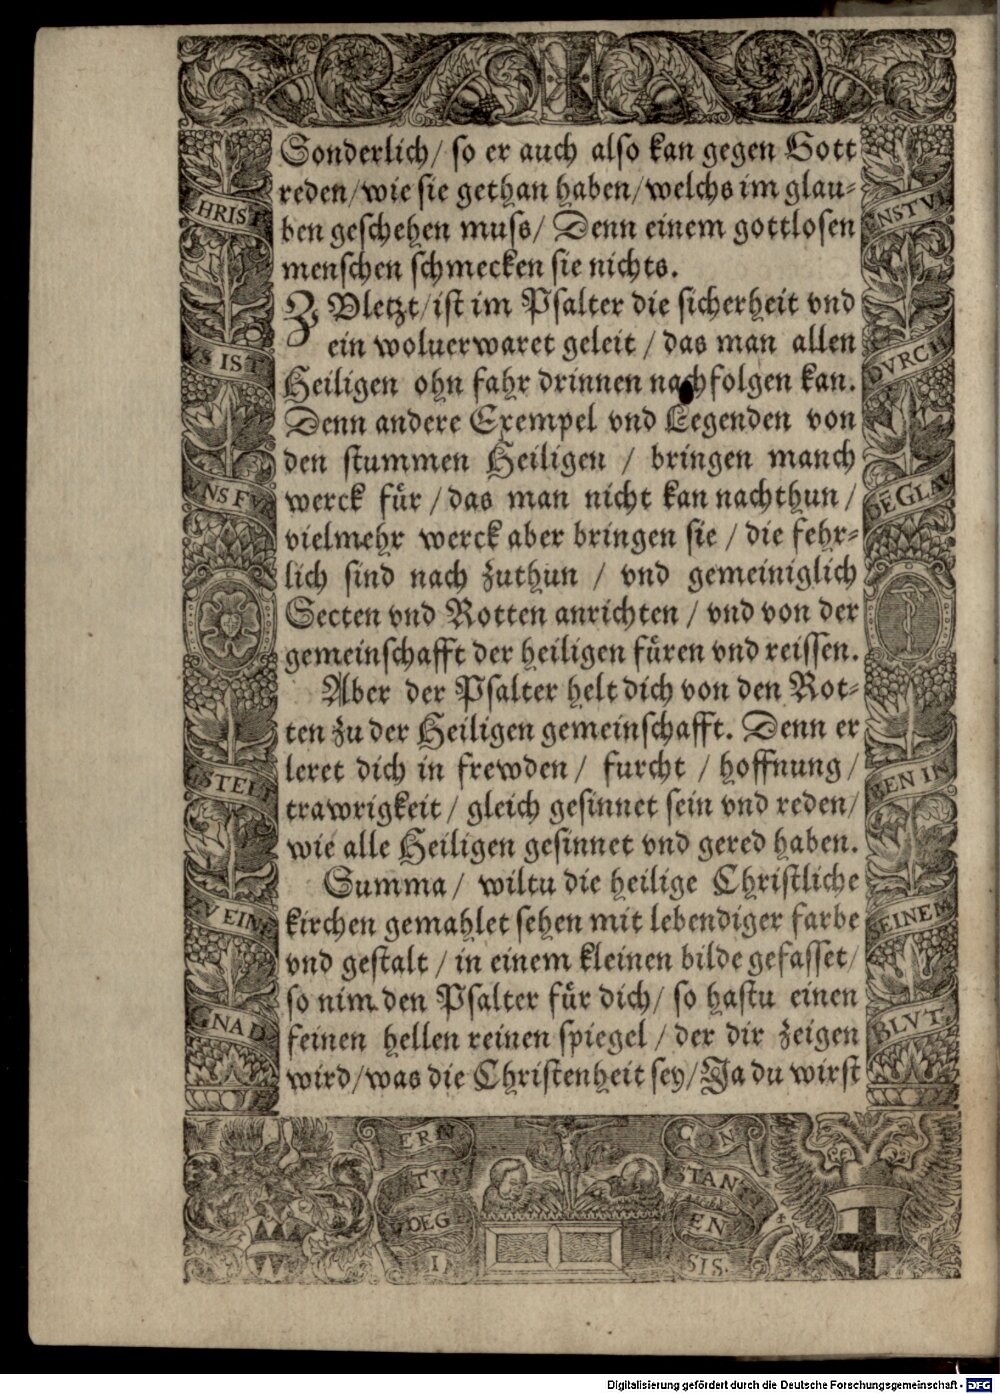 Sonderlich/ so er auch also kan gegen Gott
reden/ wie sie gethan haben/ welchs im glau-
ben geschehen muss/ Denn einem gottlosen
menschen schmecken sie nichts.
ZVletzt/ ist im Psalter die sicherheit vnd
ein woluerwaret geleit / das man allen
Heiligen ohn fahr drinnen nachfolgen kan.
Denn andere Exempel vnd Legenden von
den stummen Heiligen / bringen manch
werck fuͤr / das man nicht kan nachthun /
vielmehr werck aber bringen sie / die fehr-
lich sind nach zuthun / vnd gemeiniglich
Secten vnd Rotten anrichten / vnd von der
gemeinschafft der heiligen fuͤren vnd reissen.
Aber der Psalter helt dich von den Rot-
ten zu der Heiligen gemeinschafft. Denn er
leret dich in frewden / furcht / hoffnung /
trawrigkeit / gleich gesinnet sein vnd reden/
wie alle Heiligen gesinnet vnd gered haben.
Summa / wiltu die heilige Christliche
kirchen gemahlet sehen mit lebendiger farbe
vnd gestalt / in einem kleinen bilde gefasset/
so nim den Psalter fuͤr dich/ so hastu einen
feinen hellen reinen spiegel / der dir zeigen
wird/ was die Christenheit sey/ Ja du wirst
HRIST
VS IST
VNS FV
GSTELT
ZV EIN
GNAD
NSTVL
DVRCH
DE GLAV
BEN IN
SEINEM
BLVT.
ERN
TVS
DEG
CON
STAN
EN
SIS.
Digitalisierung gefördert durch die Deutsche Forschungsgemeinschaft - DFG